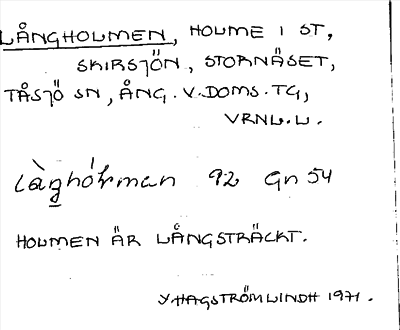 LÅNGHOLMEN, HOLME I ST,
SKIRSJÖN, STORNÄSET,
TÅSJÖ SN, ÅNG. V. DOMS. TG,
VRNL.L.
làŋhól̥man 92 Gn 54
HOLMEN ÄR LÅNGSTRÄCKT.
Y. HAGSTRÖM LINDH 1971.